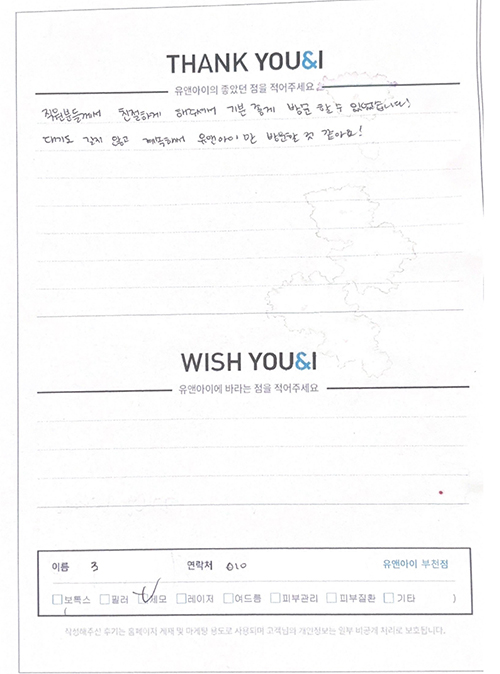 THANK YOU&I
유앤아이의 좋았던 점을 적어주세요
직원분들께서 친절하게 해주셔서 기분 좋게 방문 할 수 있었습니다!
대기도 길지 않고 계속해서 유앤아이만 방문할 것 같아요!
WISH YOU&I
유앤아이에 바라는 점을 적어주세요
이름 3 연락처 010 유앤아이 부천점
보톡스 필러 제모 레이저 여드름 피부관리 피부질환 기타 )
(
작성해주신 후기는 홈페이지 게재 및 마케팅 용도로 사용되며 고객님의 개인정보는 일부 비공개 처리로 보호됩니다.